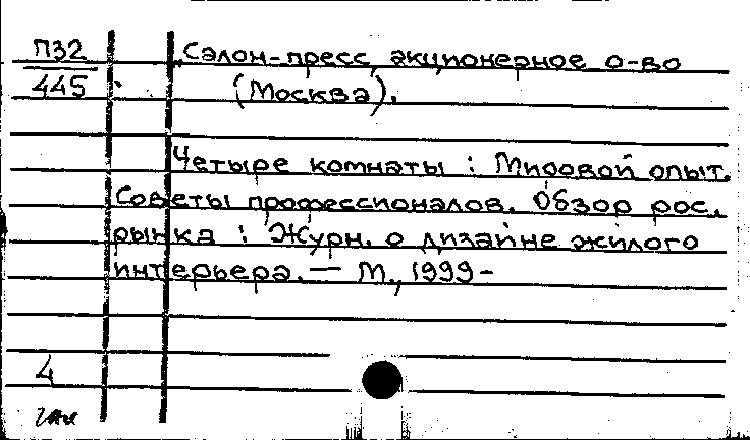 П32 Салон-пресс, акционерное о-во
445 (Москва).
Четыре комнаты : Мировой опыт.
Советы профессионалов. Обзор рос.
рынка : Журн. о дизайне жилого
интерьера. — М., 1999-
4